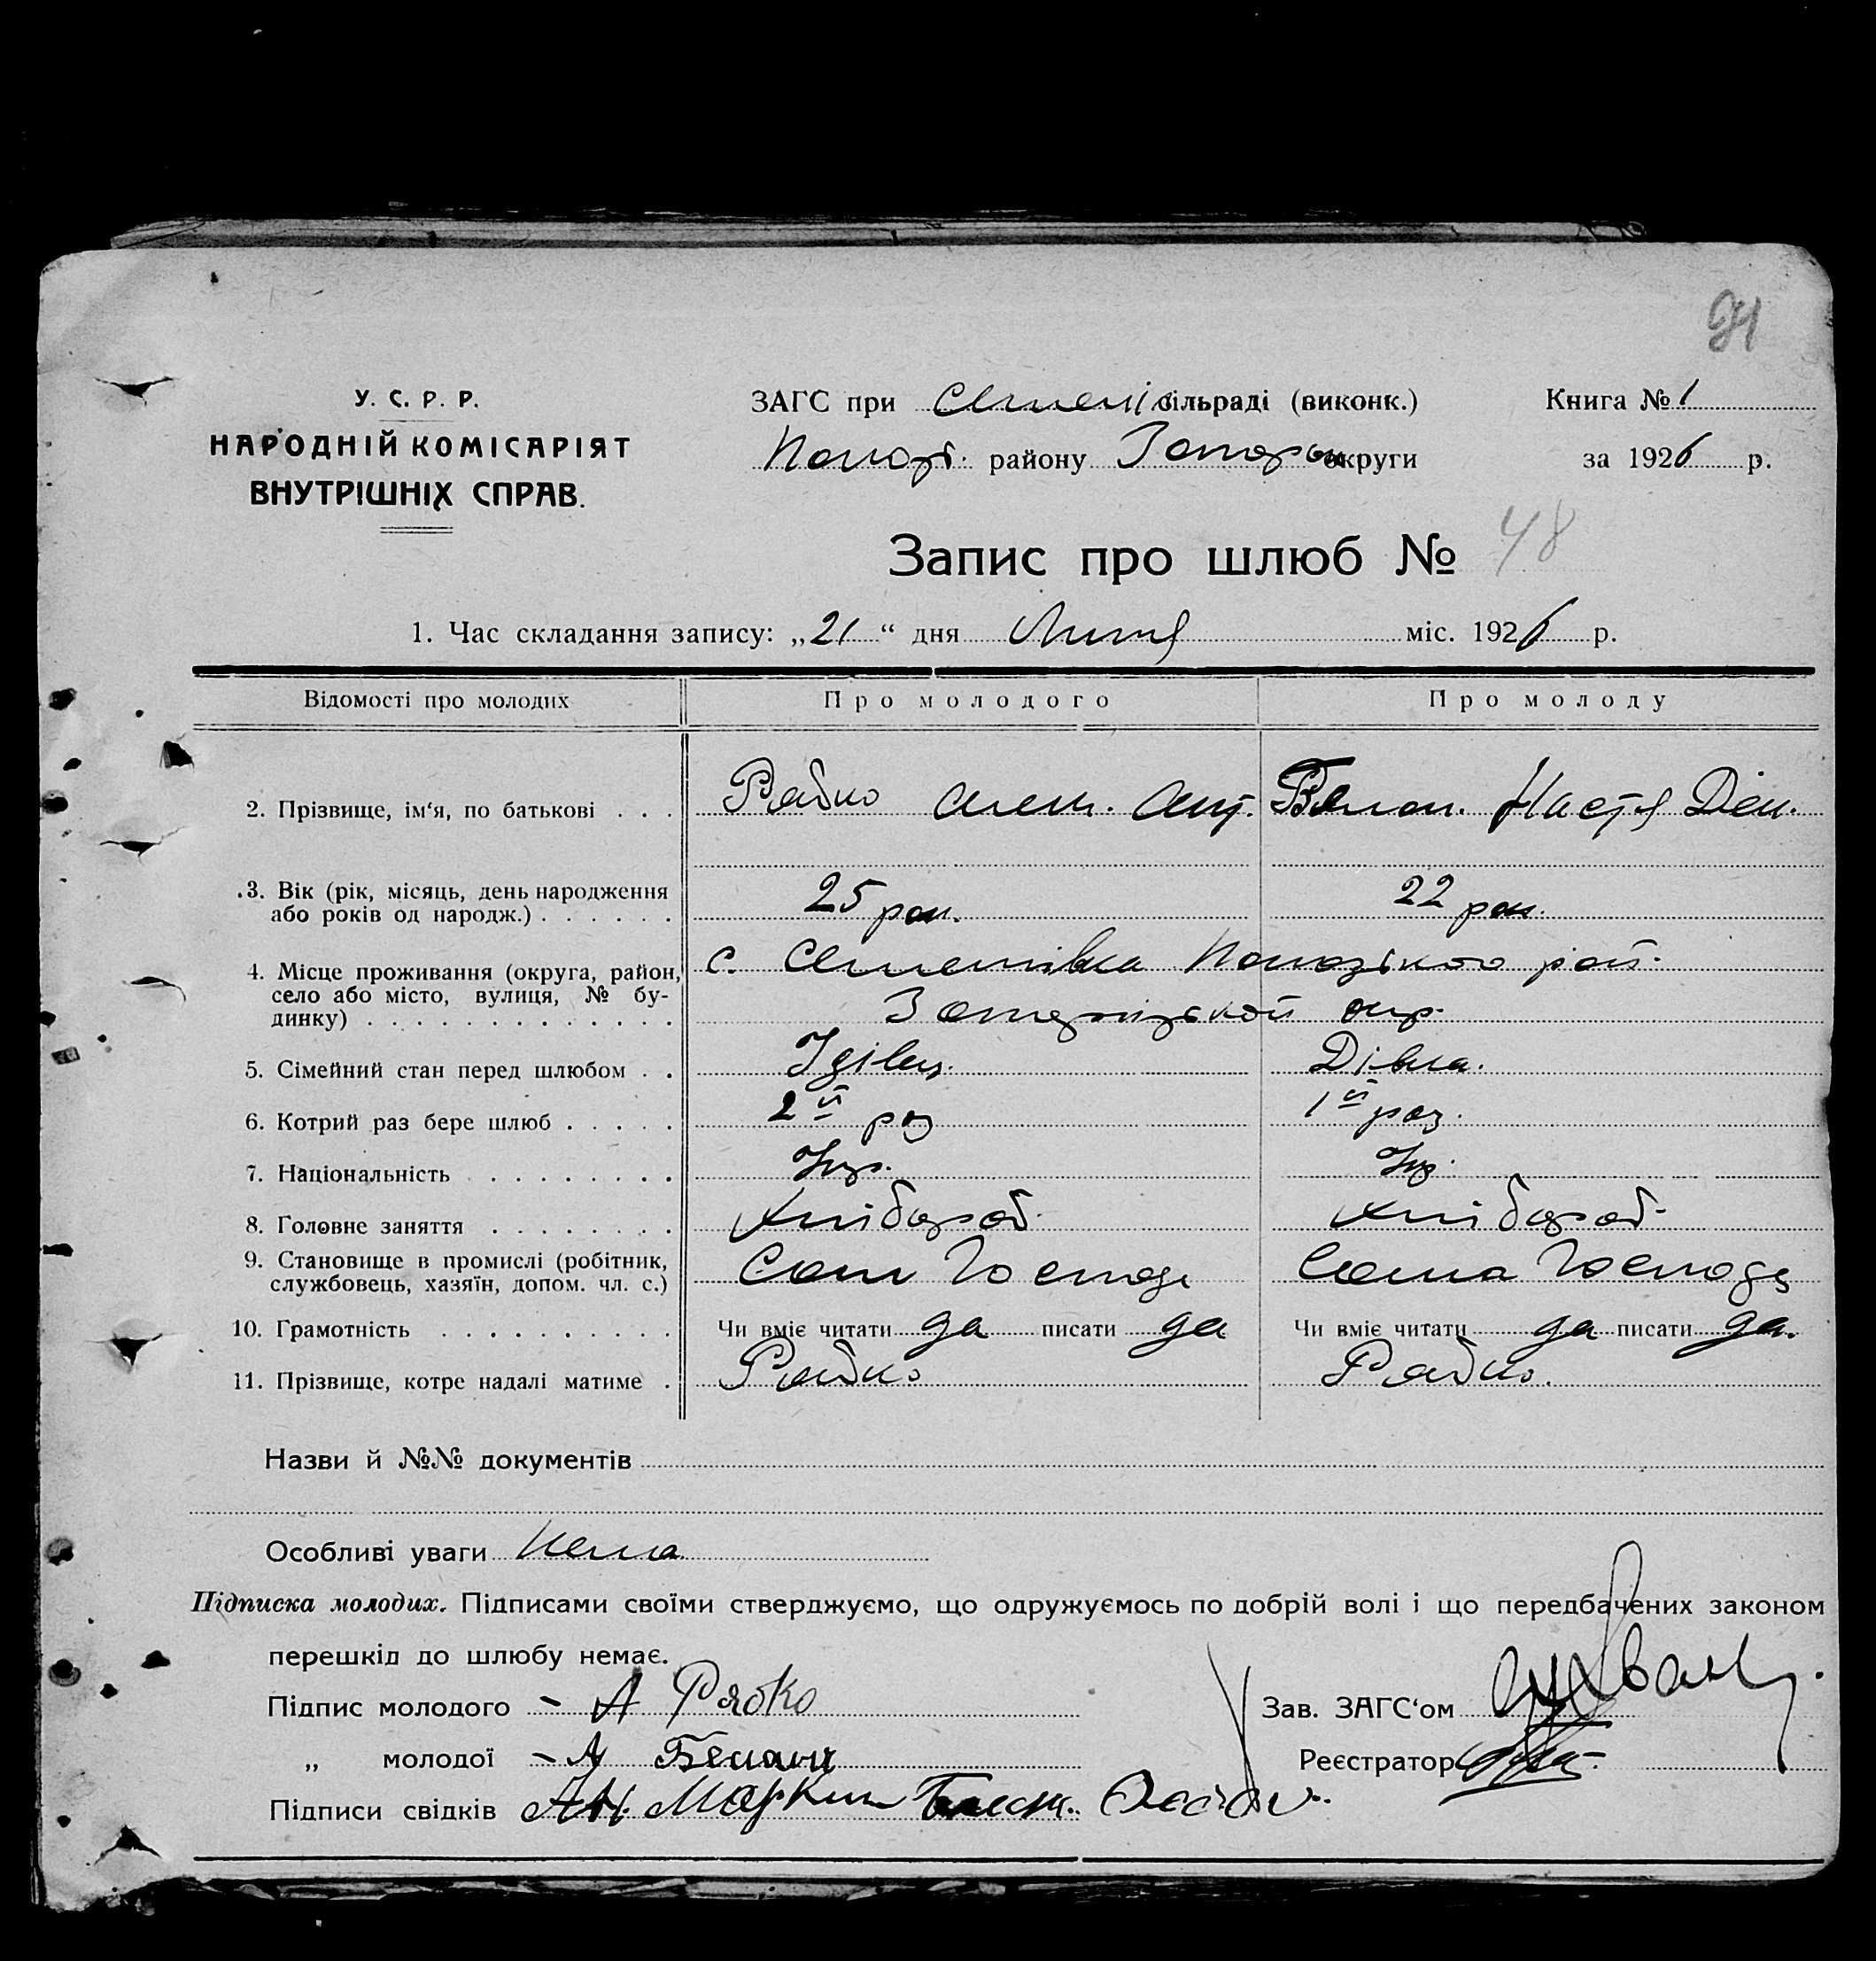 91
У. С. Р. Р.
НАРОДНІЙ КОМІСАРІЯТ
ВНУТРІШНІХ СПРАВ.
ЗАГС при Семені сільраді (виконк.)
Пологі. району Запорож округи
Книга № 1
за 1926 р.
Запис про шлюб № 48
1. Час складання запису: „21“ дня Липня міс. 1926 р.
Відомості про молодих
Про молодого
Про молоду
2. Прізвище, ім‘я, по батькові . . .
Рабко Алек. Ант.
Настя Дем.
3. Вік (рік, місяць, день народження
або років од народж.) . . . . . .
25 рок.
22 рок.
4. Місце проживання (округа, район,
село або місто, вулиця, № бу-
динку) . . . . . . . . . . . . .
с. Семенівка Пологівського рай.
Запорізької окр.
5. Сімейний стан перед шлюбом . .
Удівец.
Дівка.
6. Котрий раз бере шлюб . . . . .
2й раз
1й раз.
7. Національність . . . . . . . .
Укр.
Укр.
8. Головне заняття . . . . . . . .
Хлібороб.
Хлібороб.
9. Становище в промислі (робітник,
службовець, хазяїн, допом. чл. с.)
Сам Господ
Сама Господ
10. Грамотність . . . . . . . . . .
Чи вміє читати да писати да
Чи вміє читати да писати да.
11. Прізвище, котре надалі матиме .
Рабко
Рабко.
Назви й №№ документів
Особливі уваги Нема
Підписка молодих. Підписами своїми стверджуємо, що одружуємось по добрій волі і що передбачених законом
перешкід до шлюбу немає.
Підпис молодого – А Рябко
„ молодої
Підписи свідків
Зав. ЗАГС‘ом
Реєстратор